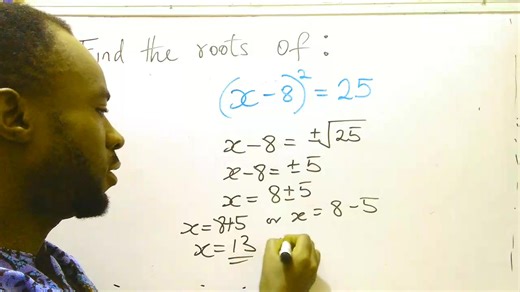 Find the roots of :
(x-8)² = 25
x-8 = ±√25
x-8 = ±5
x = 8±5
x=8+5 or x = 8-5
x=13